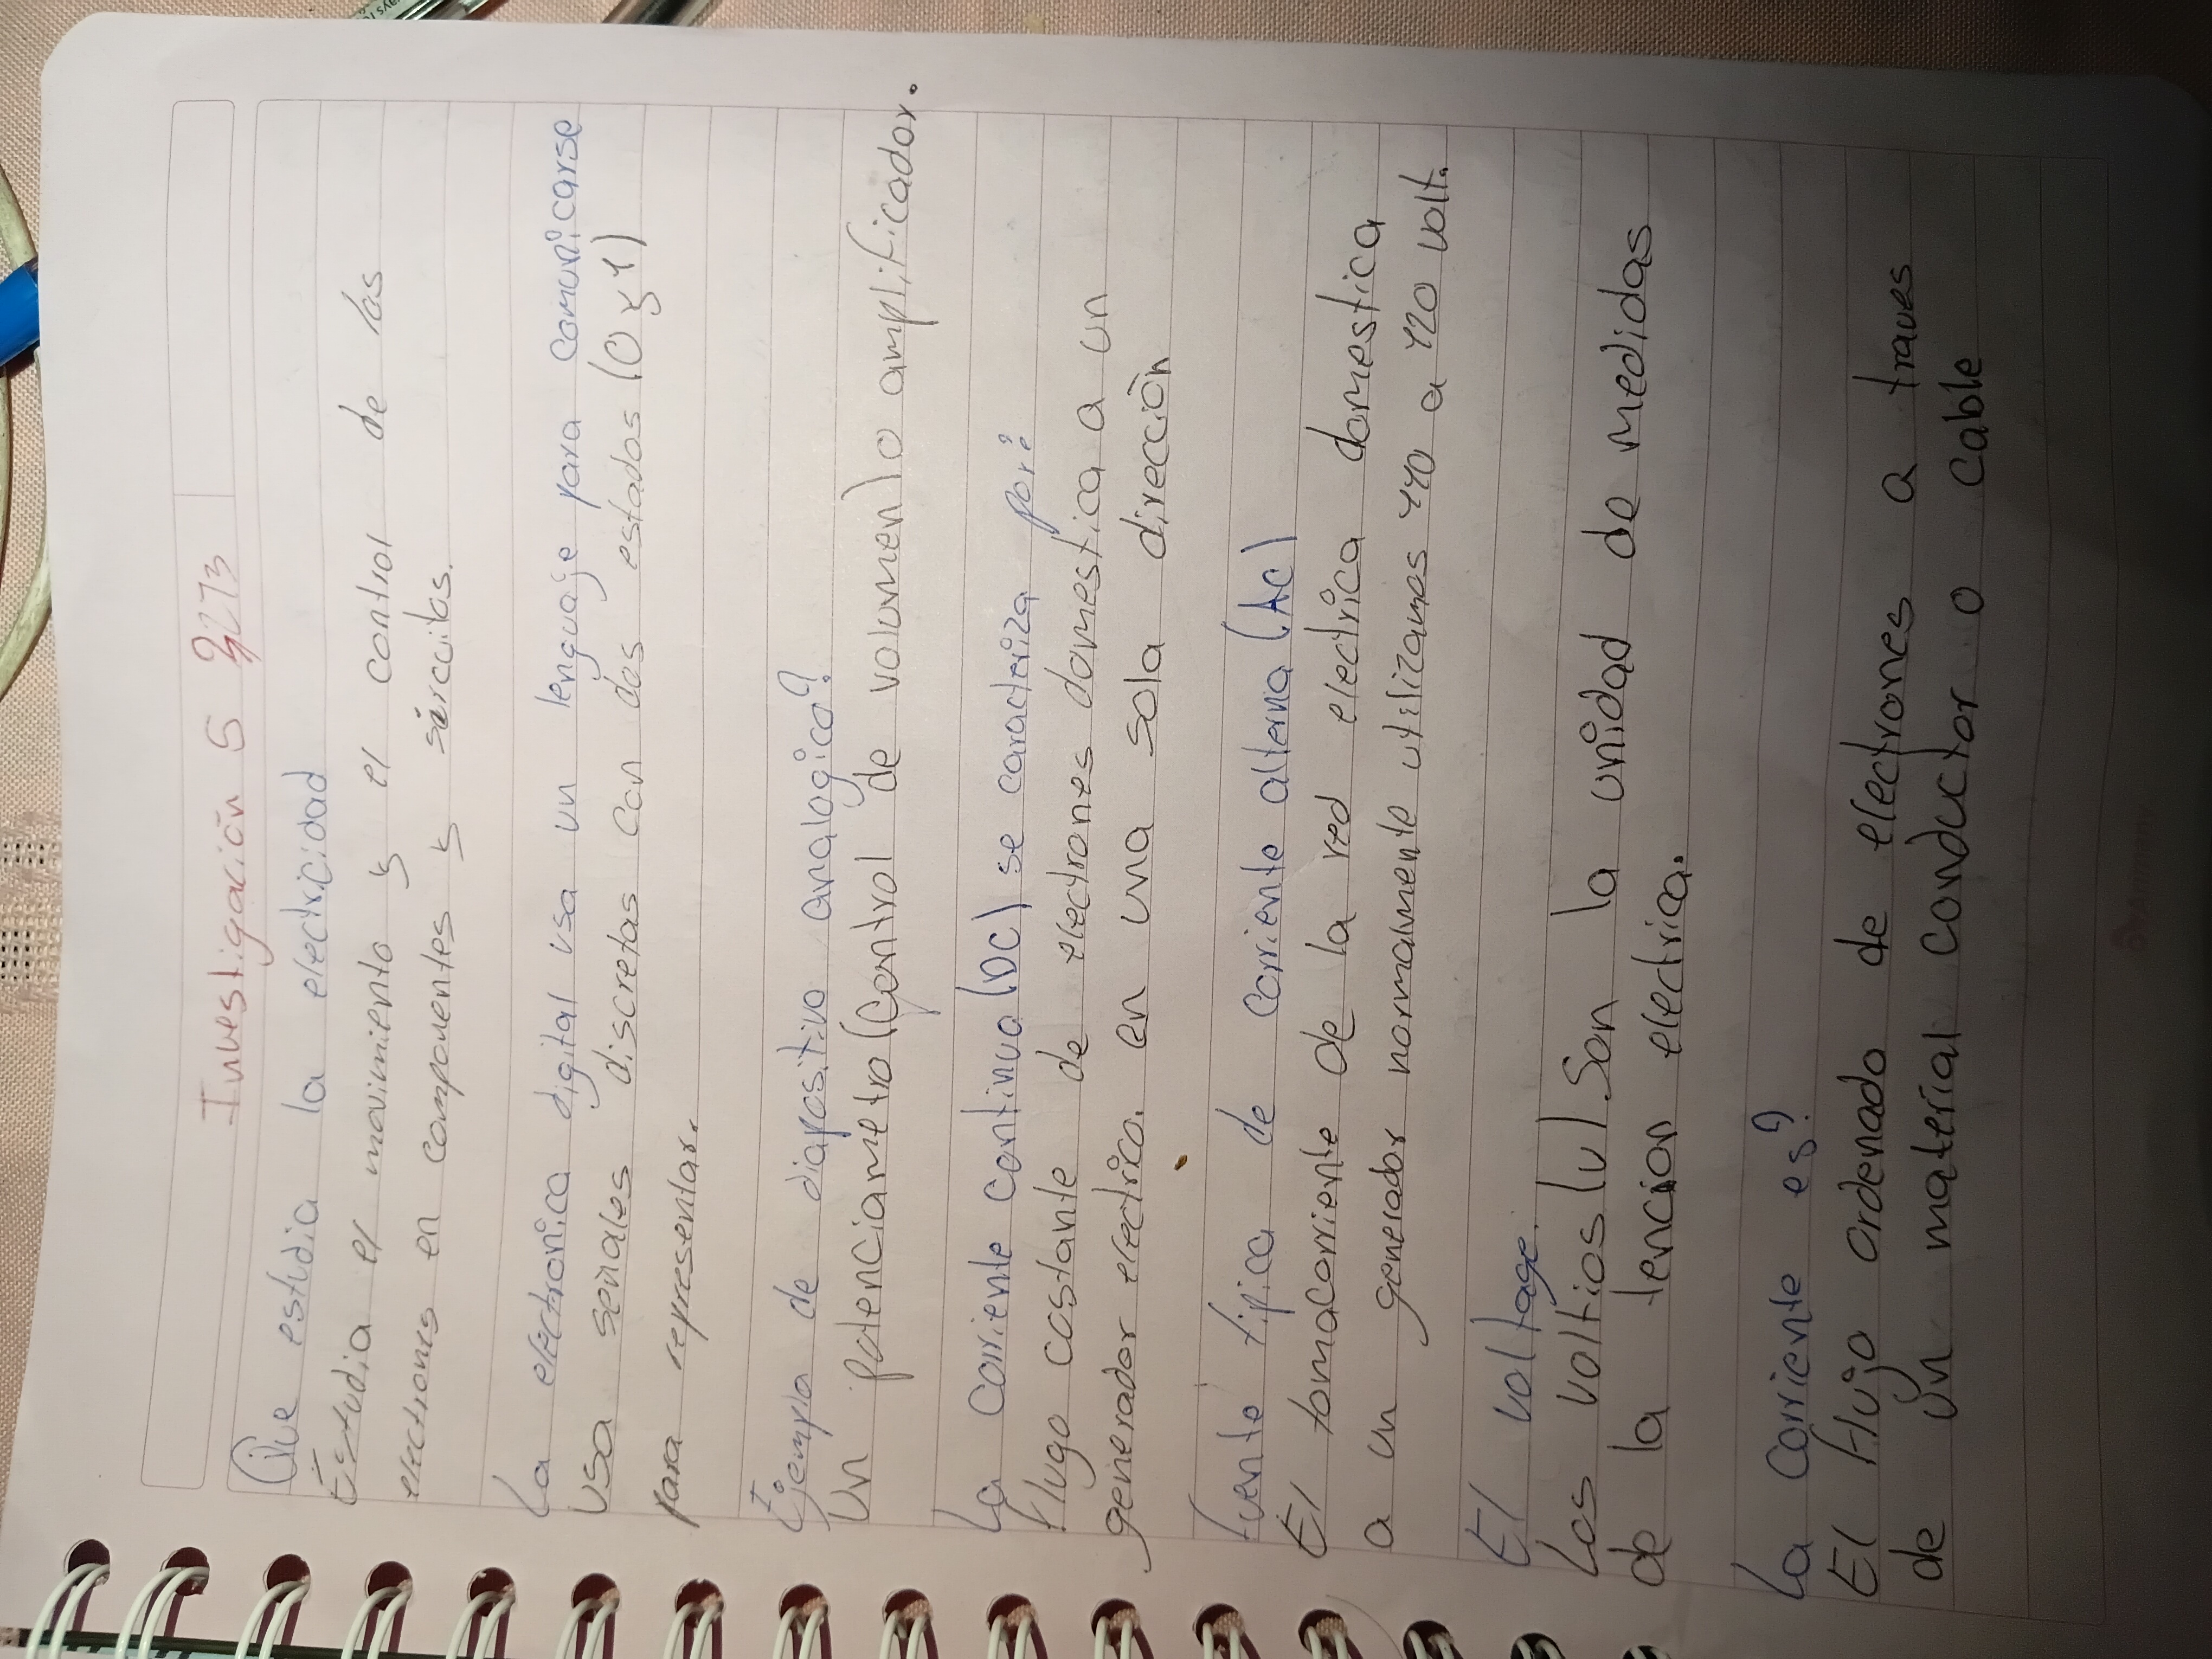 Investigación 5
Que estudia la electricidad
Estudia el movimiento y el control de los
electrones en componentes y sírcuitos.
La electronica digital usa un lenguaje para comunicarse
usa señales discretas con dos estados (0 y 1)
para representar.
Ejemplo de diapositivo analogico?
Un potenciametro (Control de volumen) o amplificador.
La corriente continua (DC) se caracteriza por?
Flugo costante de electrones domestica a un
generador electrico. en una sola dirección
fuente tipica de corriente alterna (AC)
El tomacorriente de la red electrica domestica
a un generador normalmente utilizamos 110 a 120 volt.
El voltage.
Los voltios (v) Son la unidad de medidas
de la tencion electrica.
La Corriente es?
El Flujo ordenado de electrones a traves
de un material conductor o cable